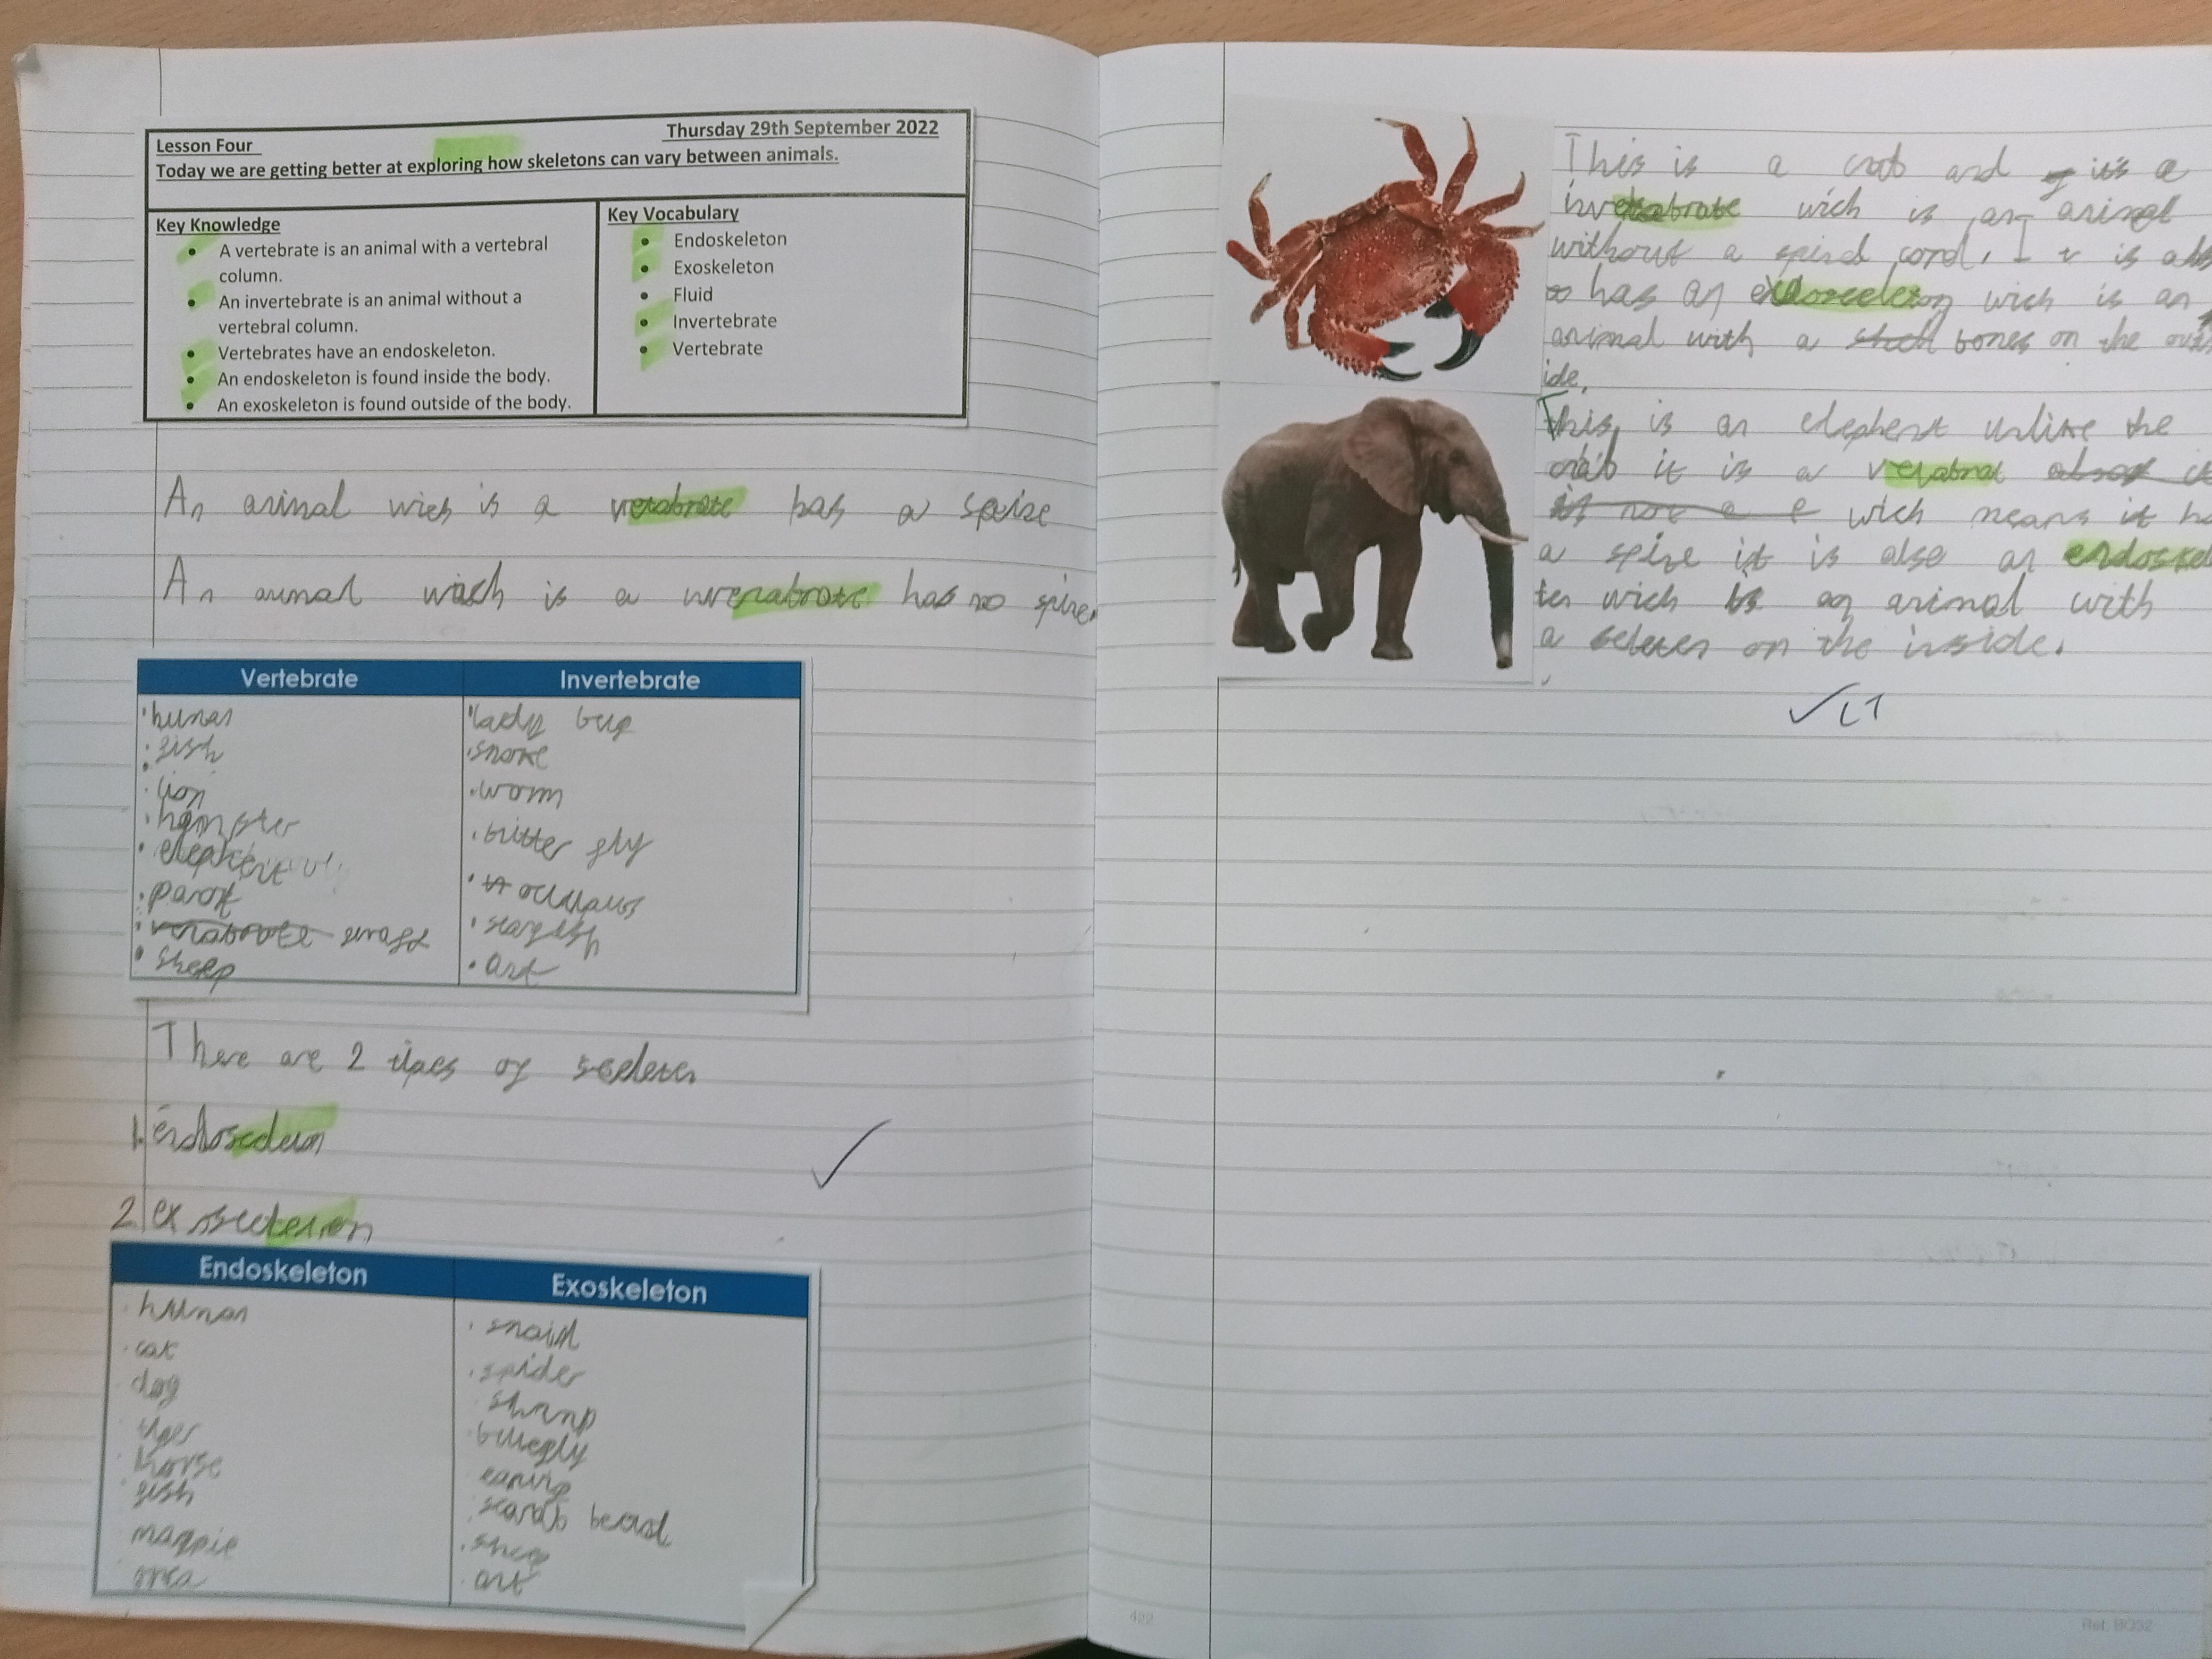 Thursday 29th September 2022
Lesson Four
Today we are getting better at exploring how skeletons can vary between animals.
Key Knowledge
• A vertebrate is an animal with a vertebral
column.
• An invertebrate is an animal without a
vertebral column.
• Vertebrates have an endoskeleton.
• An endoskeleton is found inside the body.
• An exoskeleton is found outside of the body.
Key Vocabulary
• Endoskeleton
• Exoskeleton
• Fluid
• Invertebrate
• Vertebrate
An animal wich is a vertabrate has a spine
An animal wich is a invertabrate has no spine.
Vertebrate
• human
• fish
• lion
• hampster
• elephent
• parot
• giraff
• sheep
Invertebrate
• lady bug
• snake
• worm
• butter fly
• octupus
• starfish
• ant
There are 2 tipes of sceleten
1. endosceleton
2 exosceleton
Endoskeleton
human
cat
dog
tiger
horse
fish
magpie
orca
Exoskeleton
• snail
• spider
shrimp
butterfly
earwig
scarab
• sheep
• ant
This is a crab and it's a
invertabrate wich is an animal
without a spinel cord, It is als
o has an exosceleton wich is an
animal with a bones on the outs
ide.
This is an elephent unlike the
crab it is a vertabrat
wich means it ha
a spine it is also an endoskel
ten wich is an animal with
a sceleten on the inside.
✓ LT
422
Ref: BO32